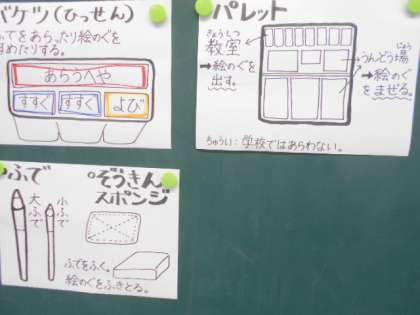 バケツ(ひっせん)
ふでをあらったり絵のぐを
すめたりする。
あらうへや
すすぐ
すすぐ
よび
パレット
きょうしつ
教室
→絵のぐを
出す。
じょう
うんどう場
→絵のぐ
をまぜる。
ちゅうい:学校ではあらわない。
ふで
大ふで
小ふで
ぞうきん
スポンジ
ふでをふく。
絵のぐをふきとる。